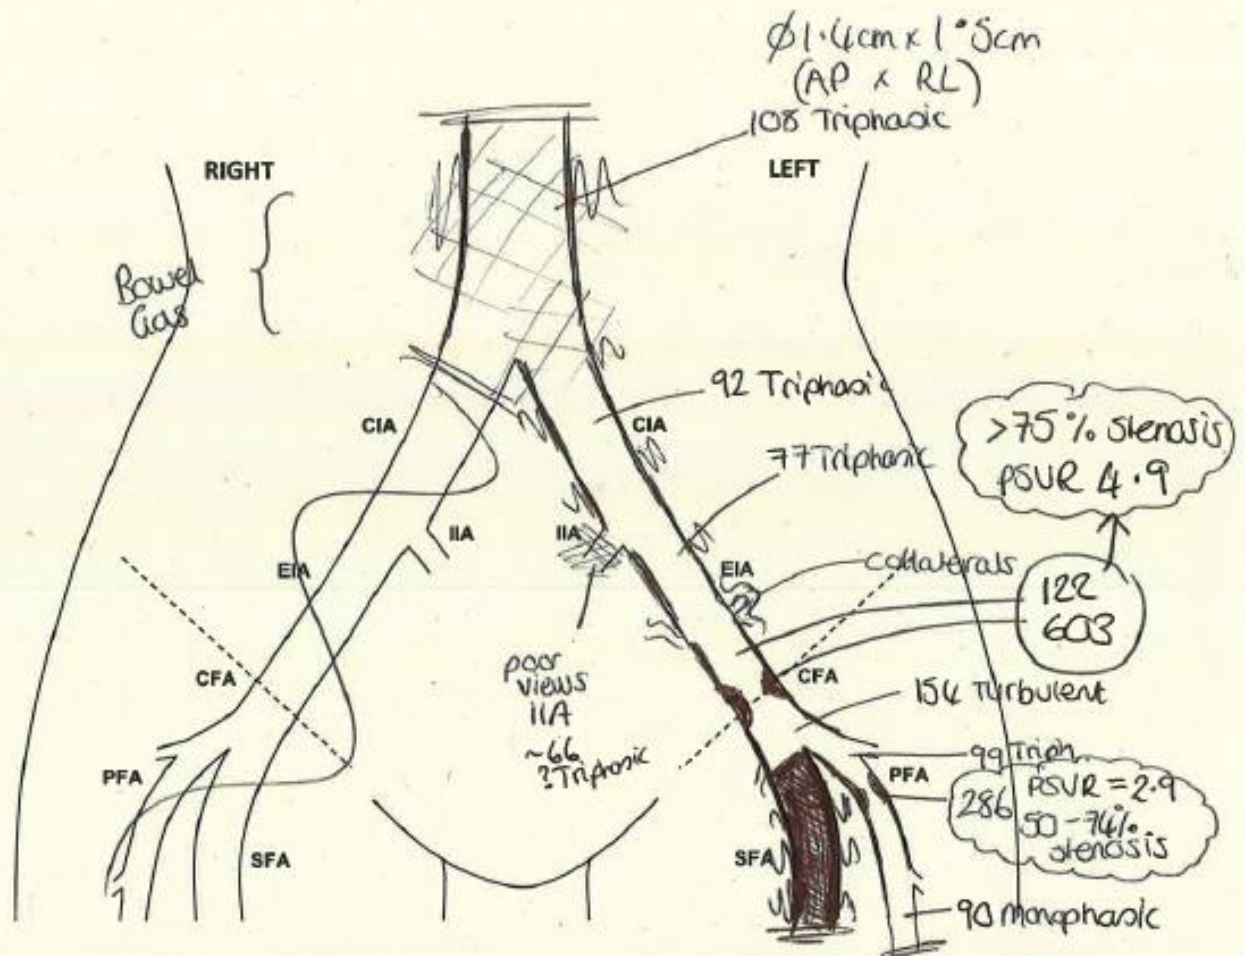 Ø1.4cm x 1.5cm
(AP x RL)
108 Triphasic
RIGHT
LEFT
Bowel
Gas
92 Triphasic
CIA
CIA
>75% stenosis
PSVR 4.9
77 Triphasic
IIA
IIA
EIA
EIA
collaterals
122
603
CFA
CFA
poor
views
IIA
~66
?Triphasic
154 Turbulent
99 Triph.
PFA
PFA
286 PSVR = 2.9
50-74%
stenosis
SFA
SFA
90 monophasic